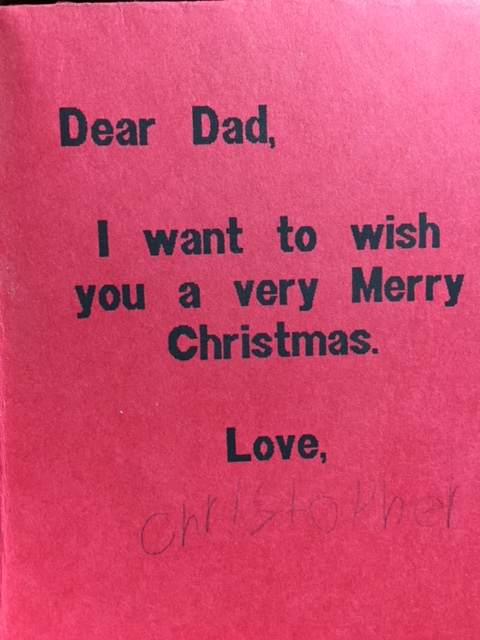 Dear Dad,
I want to wish
you a very Merry
Christmas.
Love,
Christopher